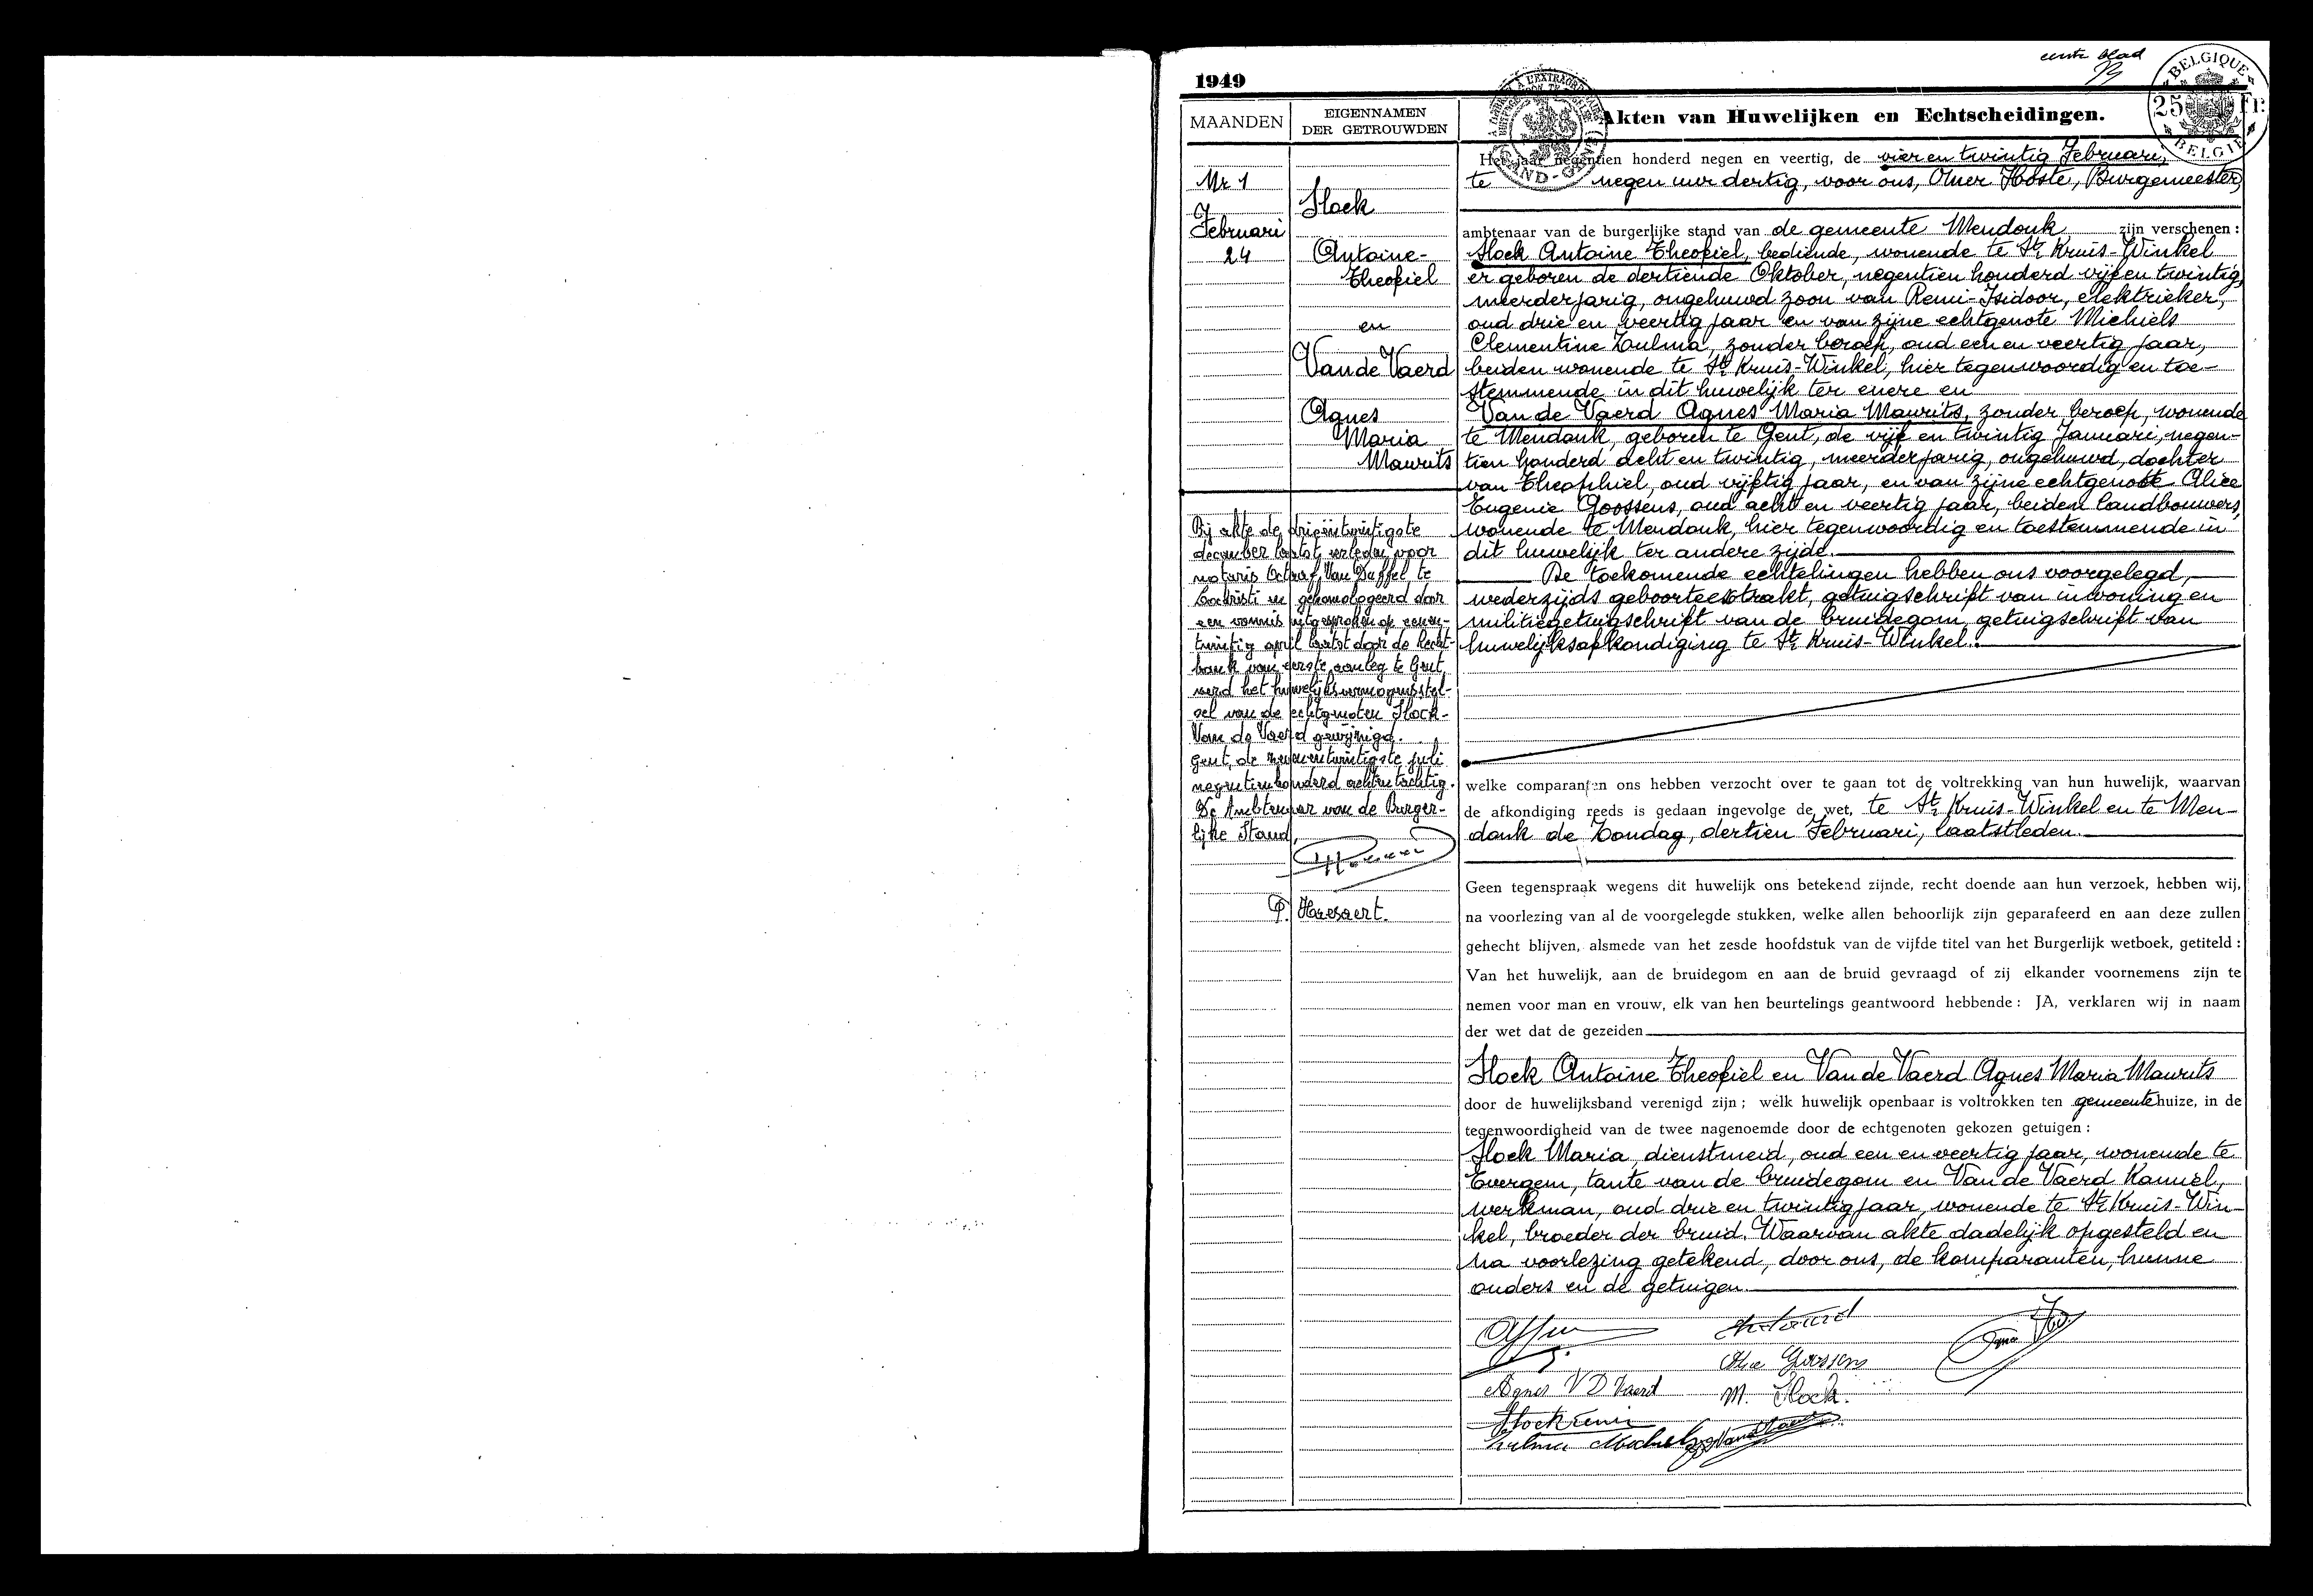 eerste blad
1949
BELGIQUE
25 Fr.
BELGIË
MAANDEN
EIGENNAMEN
DER GETROUWDEN
Akten van Huwelijken en Echtscheidingen.
Nr 1
Februari
24
Stock
Antoine-
Theofiel
en
Van de Vaerd
Agnes
Maria
Maurits
Bij akte de drieëntwintigste
december laatst, verleden voor
notaris Octaaf Van Duffel te
Lochristi en gehomologeerd door
een vonnis uitgesproken op eenen-
twintig april laatst door de Recht-
bank van eerste aanleg te Gent,
werd het huwelijksvermogensstel-
sel van de echtgenoten Stock-
Van de Vaerd gewijzigd.
Gent, de zevenentwintigste juli
negentienhonderd achtentachtig.
De Ambtenaar van de Burger-
lijke Stand,
Het jaar negentien honderd negen en veertig, de vier en twintig Februari,
te negen uur dertig, voor ons, Omer Hoste, Burgemeester,
ambtenaar van de burgerlijke stand van de gemeente Mendonk zijn verschenen :
Stock Antoine Theofiel, bediende, wonende te St Kruis-Winkel
er geboren de dertiende Oktober, negentien honderd vijf en twintig,
meerderjarig, ongehuwd zoon van Remi-Isidoor, elektrieker,
oud drie en veertig jaar en van zijne echtgenote Michiels
Clementine Zulma, zonder beroep, oud een en veertig jaar,
beiden wonende te St Kruis-Winkel, hier tegenwoordig en toe-
stemmende in dit huwelijk ter enere en
Van de Vaerd Agnes Maria Maurits, zonder beroep, wonende
te Mendonk, geboren te Gent, de vijf en twintig Januari, negen-
tien honderd acht en twintig, meerderjarig, ongehuwd, dochter
van Theophiel, oud vijftig jaar, en van zijne echtgenote Alice
Eugenie Goossens, oud acht en veertig jaar, beiden landbouwers,
wonende te Mendonk, hier tegenwoordig en toestemmende in
dit huwelijk ter andere zijde.
De toekomende echtelingen hebben ons voorgelegd,
wederzijds geboorteextrakt, getuigschrift van inwoning en
militiegetuigschrift van de bruidegom, getuigschrift van
huwelijksafkondiging te St Kruis-Winkel.
welke comparanten ons hebben verzocht over te gaan tot de voltrekking van hun huwelijk, waarvan
de afkondiging reeds is gedaan ingevolge de wet, te St Kruis-Winkel en te Men-
donk de Zondag, dertien Februari, laatstleden.
Geen tegenspraak wegens dit huwelijk ons betekend zijnde, recht doende aan hun verzoek, hebben wij,
na voorlezing van al de voorgelegde stukken, welke allen behoorlijk zijn geparafeerd en aan deze zullen
gehecht blijven, alsmede van het zesde hoofdstuk van de vijfde titel van het Burgerlijk wetboek, getiteld :
Van het huwelijk, aan de bruidegom en aan de bruid gevraagd of zij elkander voornemens zijn te
nemen voor man en vrouw, elk van hen beurtelings geantwoord hebbende : JA, verklaren wij in naam
der wet dat de gezeiden
Stock Antoine Theofiel en Van de Vaerd Agnes Maria Maurits
door de huwelijksband verenigd zijn ; welk huwelijk openbaar is voltrokken ten gemeentehuize, in de
tegenwoordigheid van de twee nagenoemde door de echtgenoten gekozen getuigen :
Stock Maria, dienstmeid, oud een en veertig jaar, wonende te
Evergem, tante van de bruidegom en Van de Vaerd Kamiel,
werkman, oud drie en twintig jaar, wonende te St Kruis-Win-
kel, broeder der bruid. Waarvan akte dadelijk opgesteld en
na voorlezing getekend, door ons, de komparanten, hunne
ouders en de getuigen.
Alice Goossens
Agnes V D Vaerd
M. Stock.
Stock Remi
Zulma Michiels